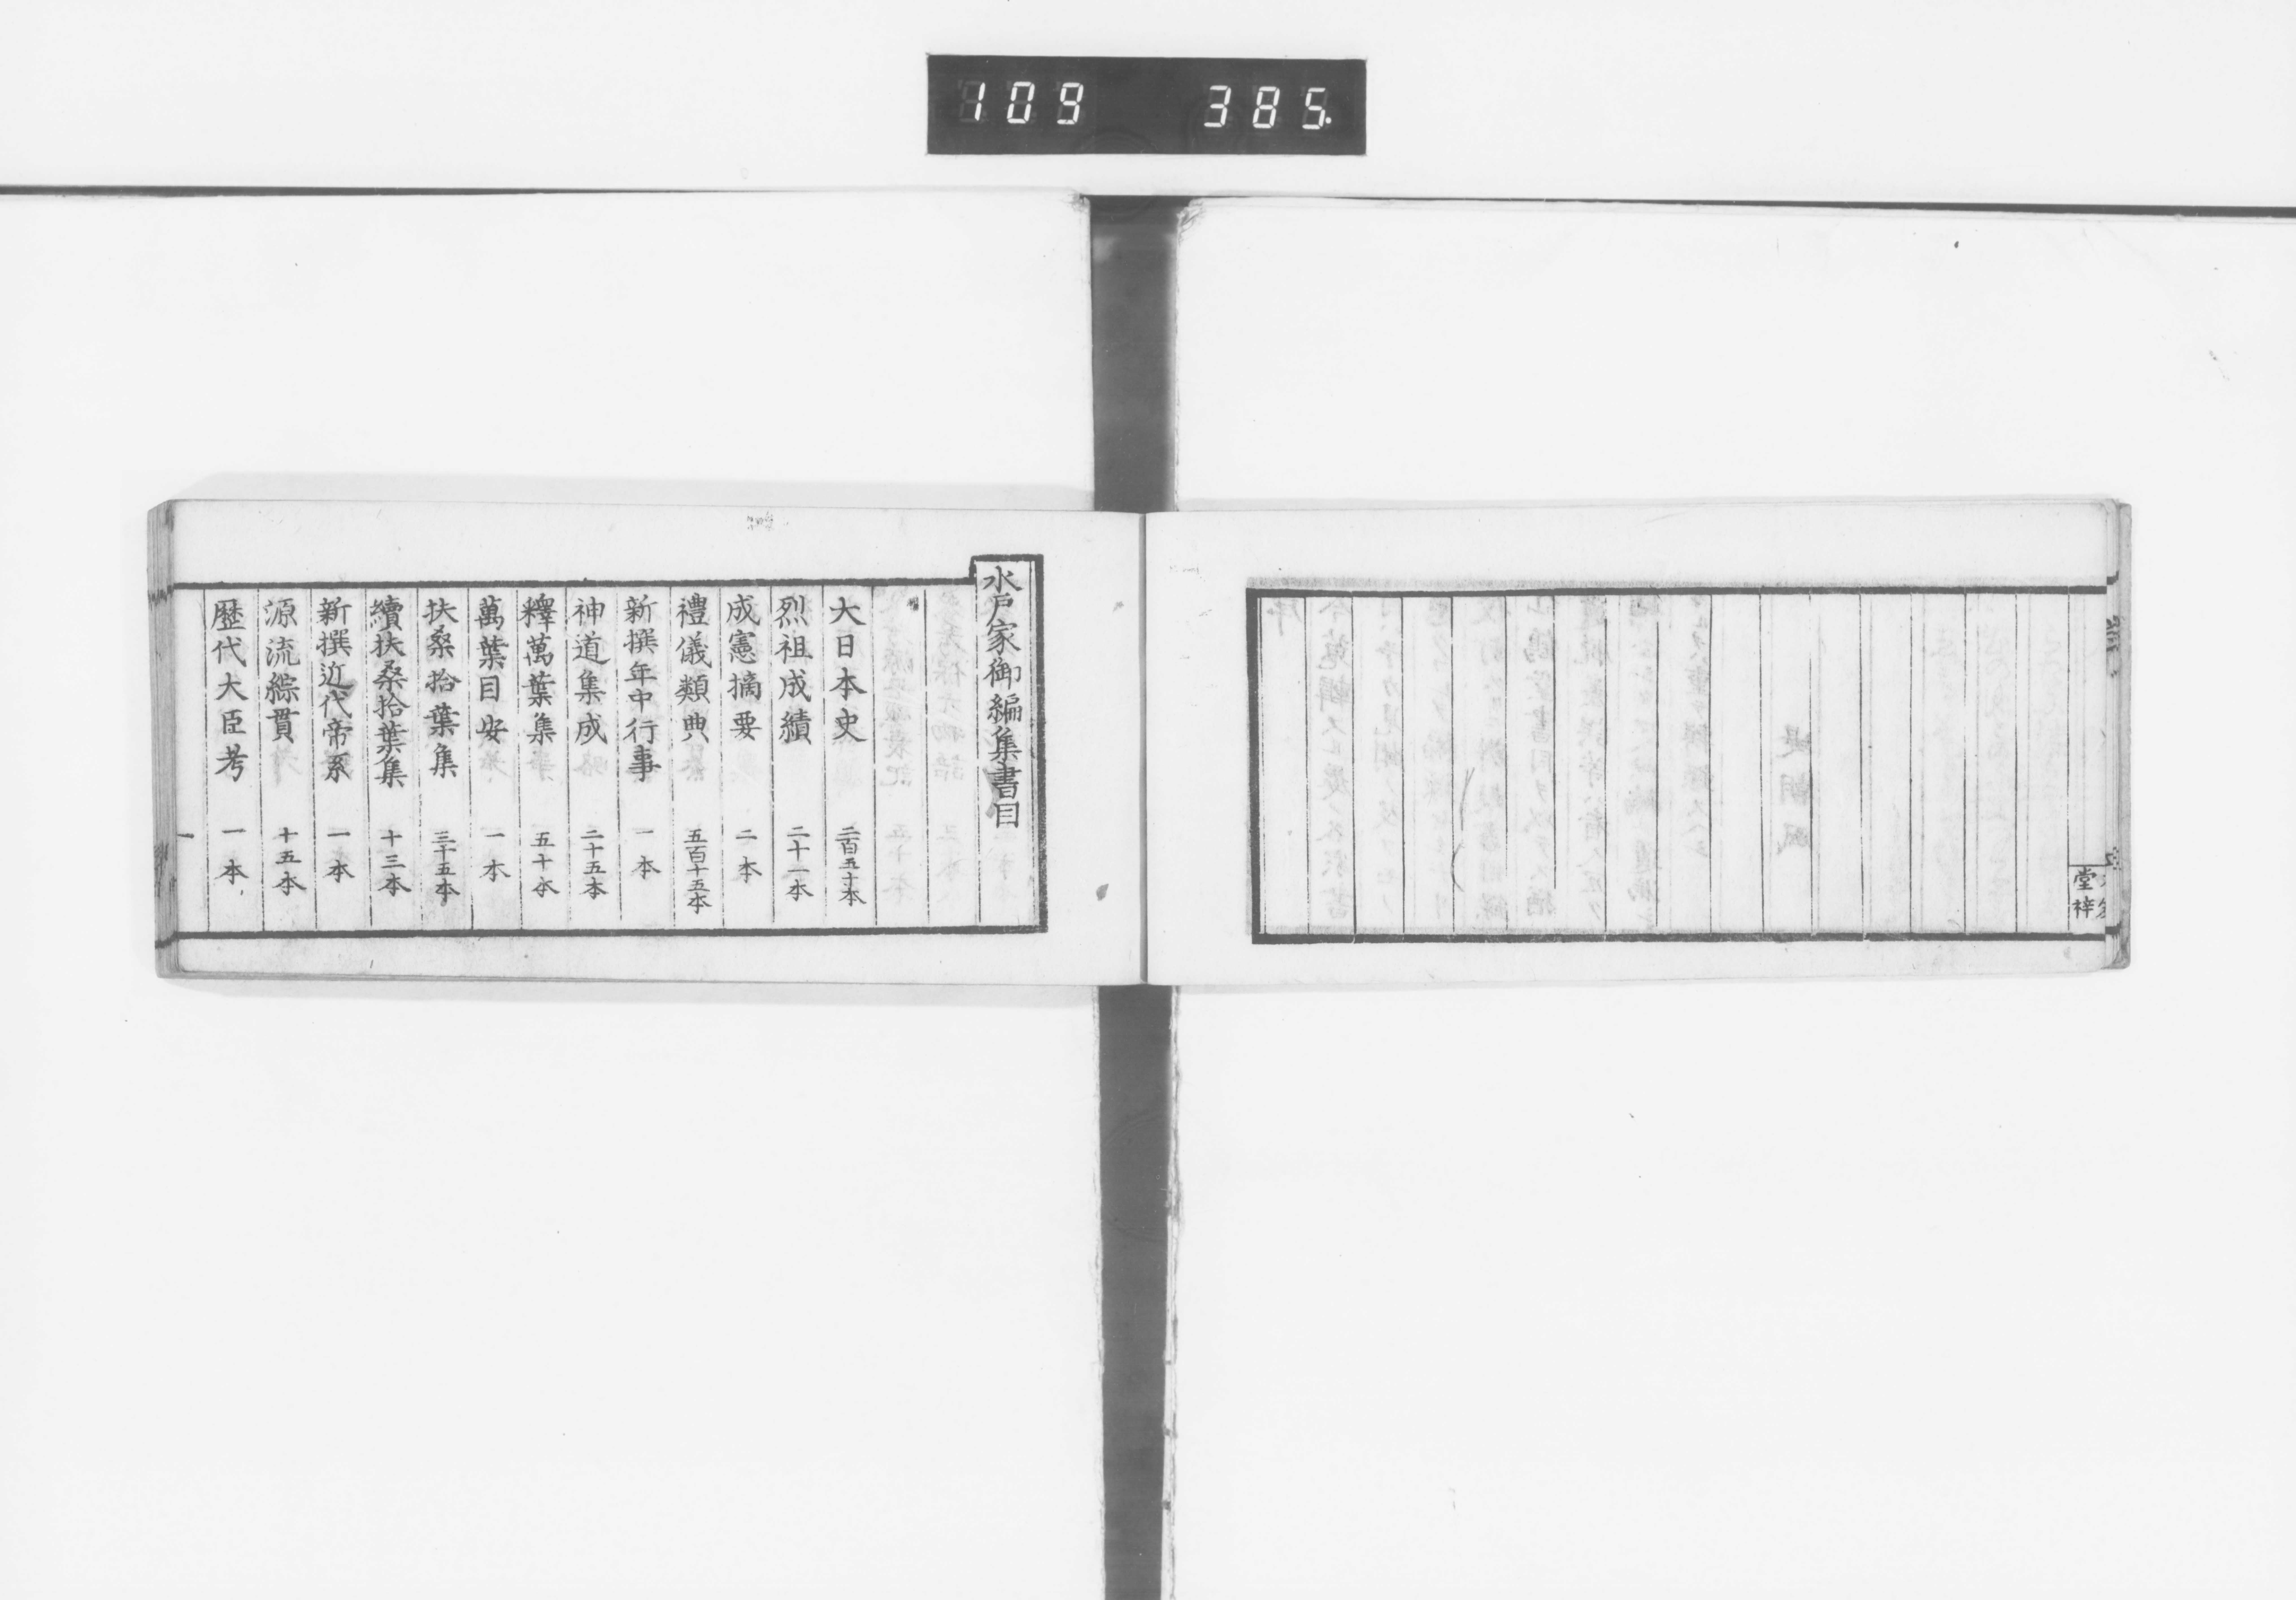 109 385
堂梓
水戸家御編集書目
大日本史 二百五十本
烈祖成績 二十一本
成憲摘要 二本
禮儀類典 五百十五本
新撰年中行事 一本
神道集成 二十五本
釋萬葉集 五十本
萬葉目安 一本
扶桑拾葉集 三十五本
續扶桑拾葉集 十三本
新撰近代帝系 一本
源流綜貫 十五本
歷代大臣考 一本
一